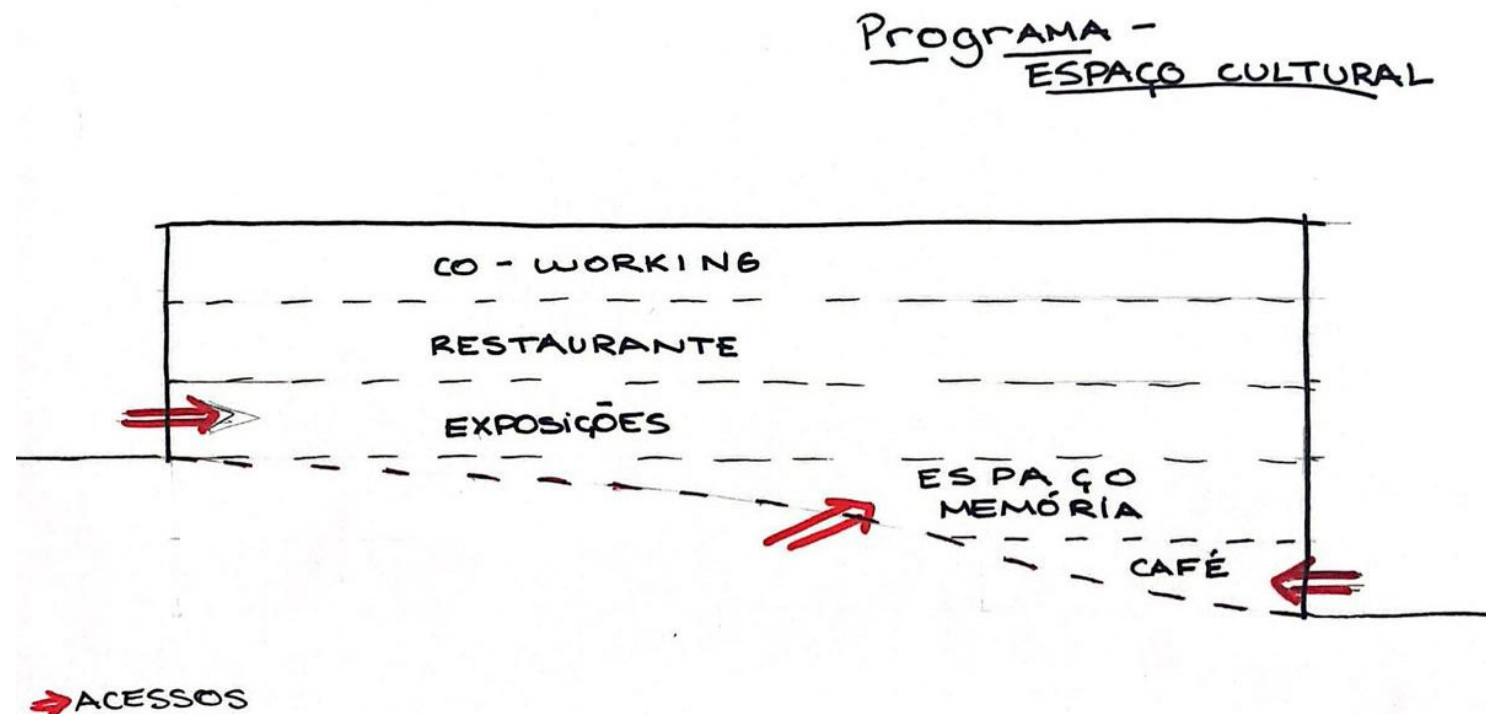 PrograMA -
ESPAÇO CULTURAL
CO - WORKING
RESTAURANTE
EXPOSIÇÕES
ESPAÇO
MEMÓRIA
CAFÉ
ACESSOS